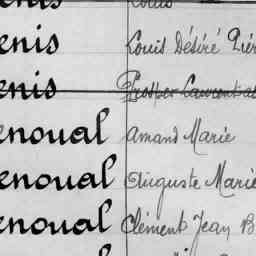 enis Louis
enis Louis Désiré Pier
enis Prosper Laurent
enoual Amand Marie
enoual Auguste Marie
enoual Clément Jean B